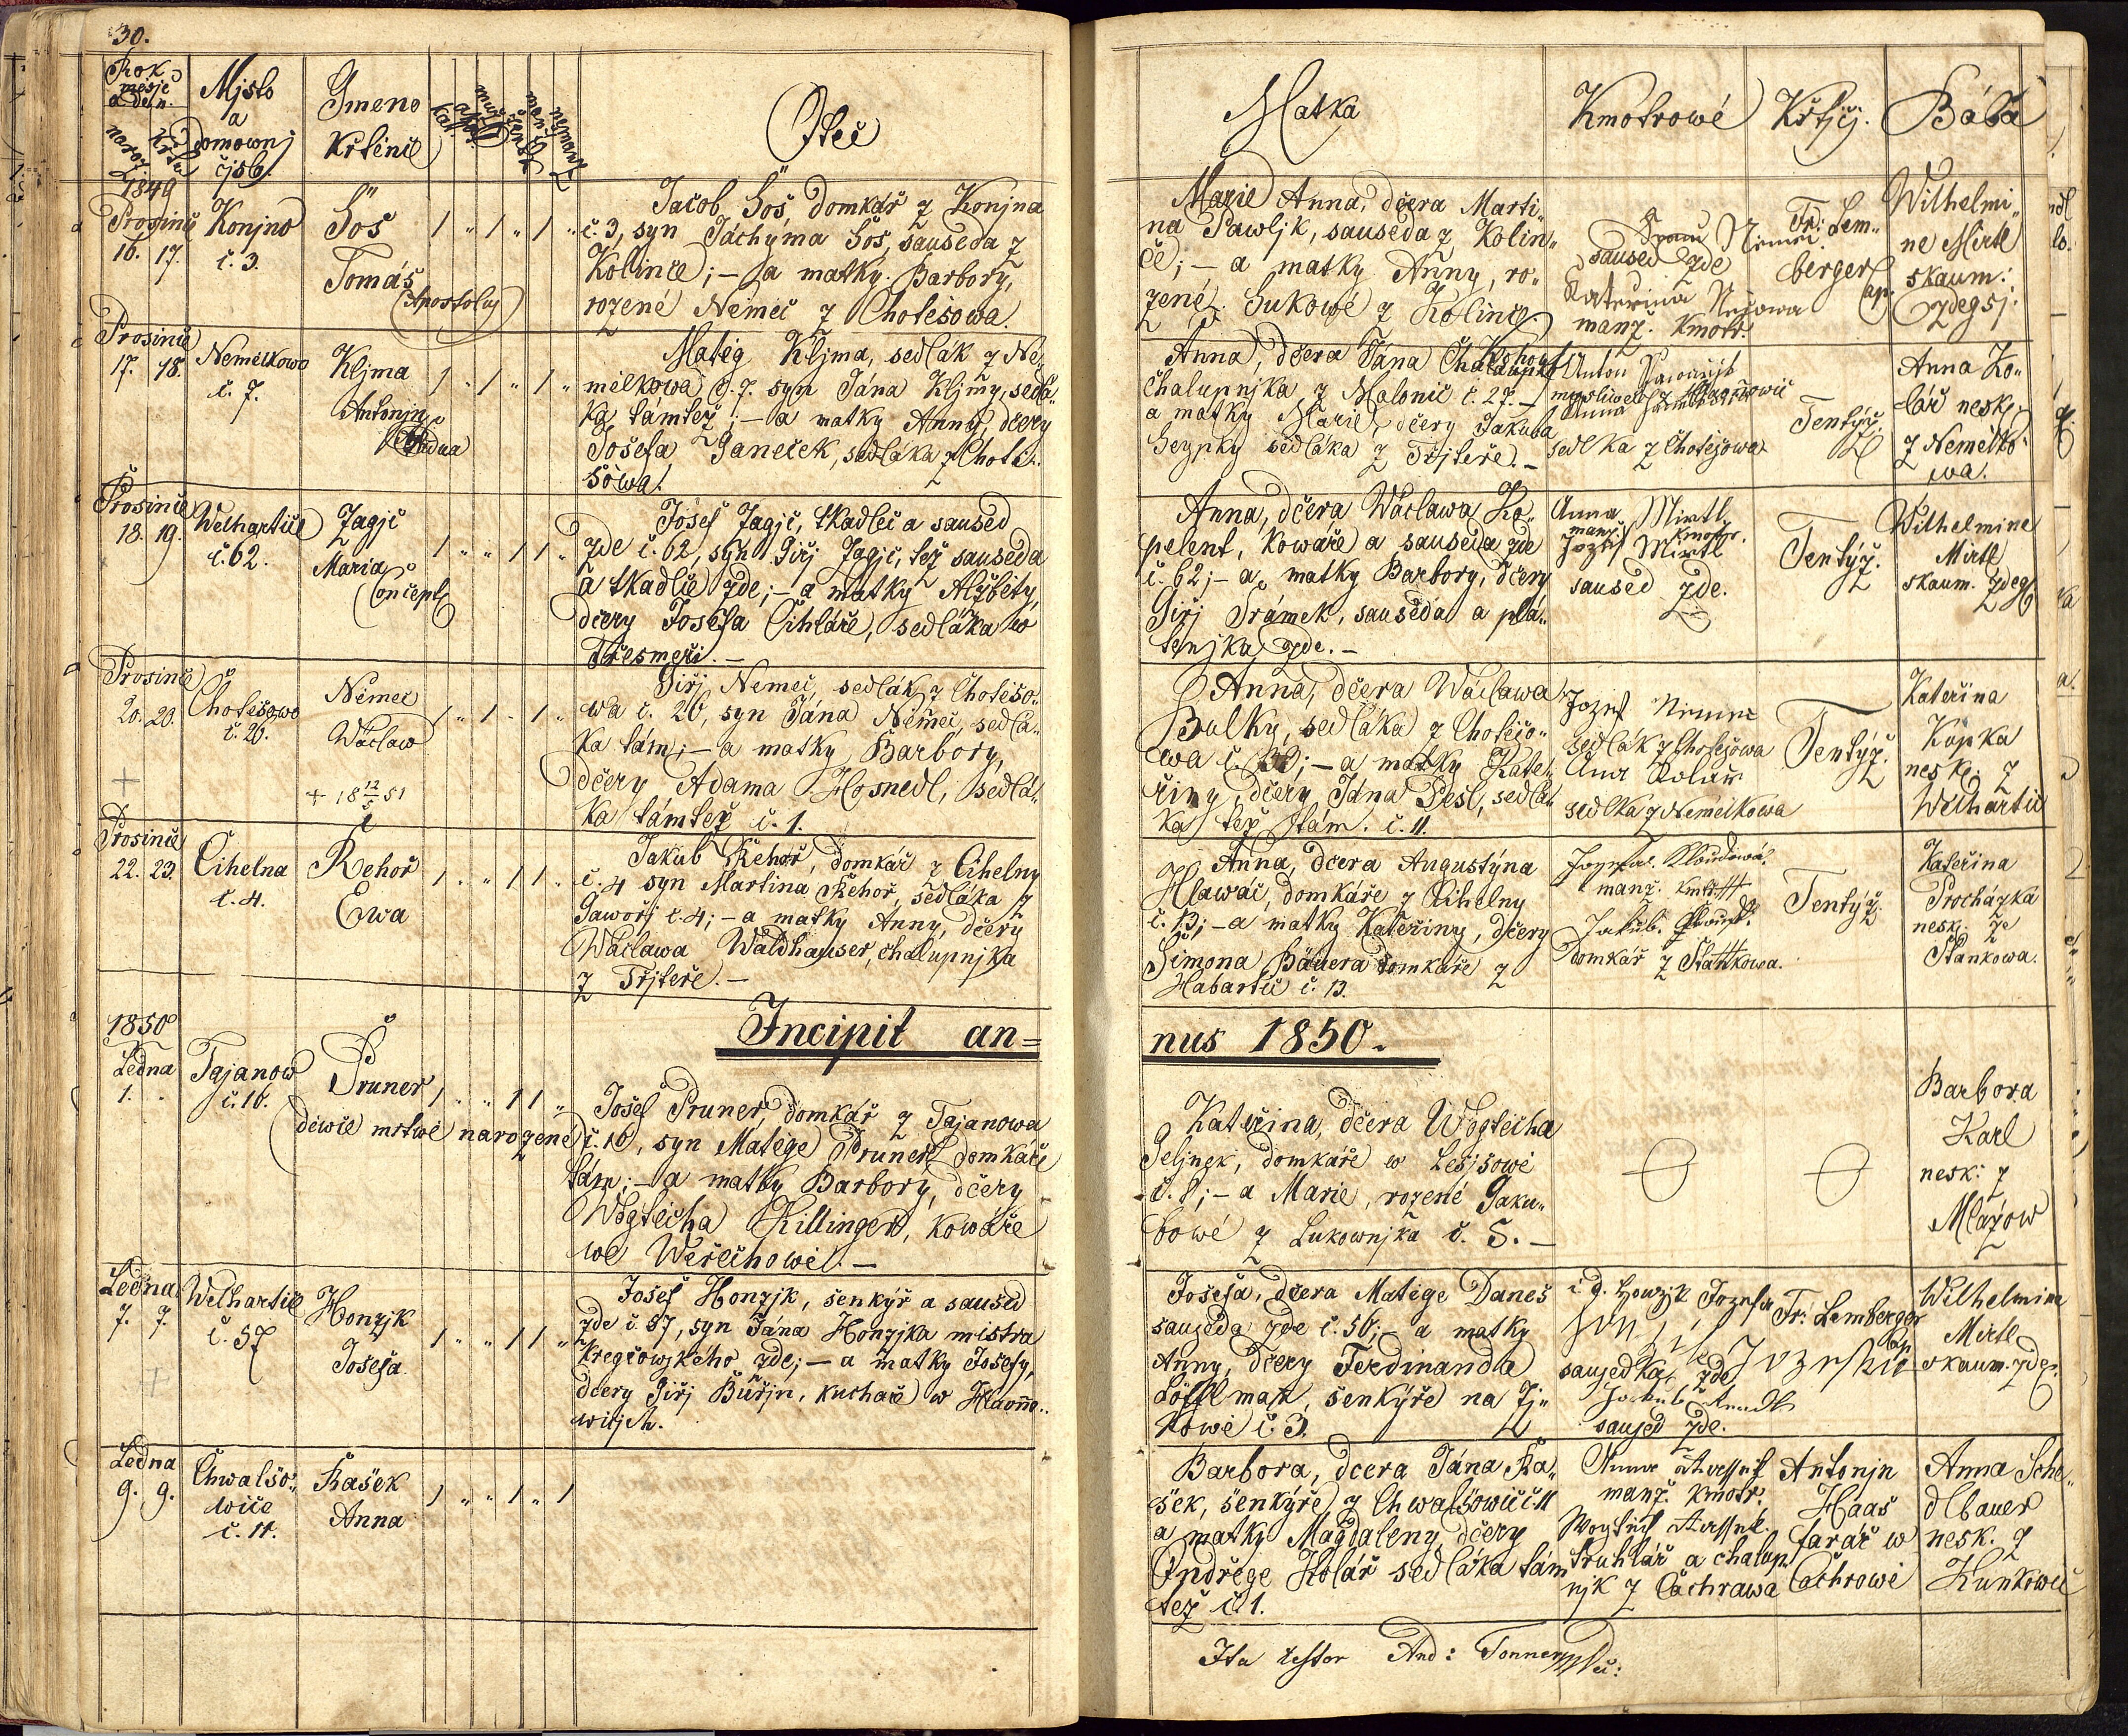 30.
Rok
měsjc
a den.
naroz.
křtu
Mjsto
a
domownj
čjslo.
Gmeno
Křtěnce
Otec
Matka
Kmotrowé
Křtjcj.
Bába
1849
Prosince
16. 17.
Konjno
č. 3.
Šos
Tomáš
(Apostolus)
1 " 1 " 1 "
Jacob Šos, domkář z Konjna
č. 3, syn Jáchyma Šos, sauseda z
Kolince; — a matky Barbory,
rozené Němec z Chotěšowa.
Marie Anna, dcera Marti„
na Pawljk, sauseda z Kolin„
ce; — a matky Anny, ro„
zené Sukowé z Kolince.
saused zde
Kateřina
manž. kmotr.
Fr: Lem„
berger
Wilhelmi„
ne Mirtl
skaum:
zdegsj.
Prosince
17. 18.
Nemělkowo
č. 7.
Kljma
Antonjn
Padua
1 " 1 " 1 "
Matěg Kljma, sedlák z Ně„
mělkowa č. 7. syn Jána Kljmy, sedlá„
ka tamtéž; — a matky Anny, dcery
Josefa Janeček, sedláka z Chotě„
šowa.
Anna, dcera Jána Kohout
chalupnjka z Malonic č. 27. —
a matky Marie, dcery Jakuba
Seypky sedláka z Trjteře. —
Anton
Anna
sedlka z Chotěšowa
Tentýž.
Anna Ko„
lář nesk.
z Nemělko„
wa.
Prosince
18. 19.
Welhartice
č. 62.
Zagjc
Maria
Concepta
1 " " 1 1 "
Josef Zagjc, tkadlec a saused
zde č. 62, syn Giřj Zagjc, též sauseda
a tkadlce zde; — a matky Alžběty,
dcery Josefa Cihláře, sedláka w
Třesmeři. —
Anna, dcera Wáclawa Ko„
pelent, kowáře a sauseda zde
č. 62; — a matky Barbory, dcery
Giřj Šrámek, sauseda a plá„
tenjka zde. —
Anna Mirtl
manž. kmotr.
Jozef Mirtl
saused zde.
Tentýž.
Wilhelmine
Mirtl
skaum. zdeg.
Prosince
20. 20.
Chotěšowo
č. 20.
Němec
Wáclaw
+ 18 12/5 51
1 " 1 " 1 "
Giřj Němec, sedlák z Chotěšo„
wa č. 20, syn Jána Němec, sedlá„
ka tám; — a matky Barbory,
dcery Adama Hosnedl, sedlá„
ka támtéž č. 1.
Anna, dcera Wáclawa
Bulky, sedláka z Chotěšo„
wa č.; — a matky Kate„
řiny, dcery Jána Pešl, sedlá„
ka též tám. č. 11.
Jozef Nemec
sedlák z Chotěšowa
Ana Kolář
sedlka z Nemělkowa
Tentýž.
Kateřina
Kopka
nesk. z
Welhartic
Prosince
22. 23.
Cihelna
č. 4.
Řehoř
Ewa
1 " " 1 1 "
Jakub Řehoř, domkář z Cihelny
č. 4 syn Martina Řehoř, sedláka z
Jawořj č. 4; — a matky Anny, dcery
Wáclawa Waldhauser, chalupnjka
z Trjteře. —
Anna, dcera Augustýna
Hlawač, domkáře z Cihelny
č. 13; — a matky Kateřiny, dcery
Simona Bäuera domkáře z
Habartic č. 13.
manž. kmotr
Jakub
domkář z Staňkowa.
Tentýž
Kateřina
Procházka
nesk. ze
Staňkowa.
Incipit an=
nus 1850.
1850
Ledna
1.
Tajanow
č. 16.
Pruner
děwče mrtwé narozené
1 " " 1 1 "
Josef Pruner, domkář z Tajanowa
č. 16, syn Matěge Pruner, domkáře
tám; — a matky Barbory, dcery
Wogtěcha Killinger, kowáře
we Weřechowě. —
Kateřina, dcera Wogtěcha
Geljnek, domkáře w Lešjšowě
č. 8; — a Marie, rozené Jaku„
bowé z Lukownjka č. 5. —
Barbora
Karl
nesk: z
Mlázow
Ledna
7. 7.
Welhartice
č. 57
Honzjk
Josefa.
1 " " 1 1 "
Josef Honzjk, šenkýř a saused
zde č. 57, syn Jána Honzjka mistra
kregčowského zde; — a matky Josefy,
dcery Giřj Buřjn, kuchaře w Hlawňo„
wicjch.
Josefa, dcera Matěge Daneš
sauseda zde č. 56; — a matky
Anny, dcery Ferdinanda
Löffelman, šenkýře na Zj„
kowě č. 3.
sausedka zde
Jakub
saused zde.
Fr: Lemberger
Wilhelmine
Mirtl
skaum. zdeg.
Ledna
9. 9.
Chwalšo„
wice
č. 11.
Kašek
Anna
1 " " 1 " 1
Barbora, dcera Jána Ka„
šek, šenkýře z Chwalšowic č. 11
a matky Magdaleny, dcery
Ondřege Kolář sedláka tám
též č. 1.
Anna
manž. kmotr.
Wogtěch
truhlář a chalup„
njk z Čachrawa
Antonjn
Haas
farář w
Čachrowě
Anna Sche„
dlbauer
nesk. z
Kunkowic
Ita testor And: Tonner